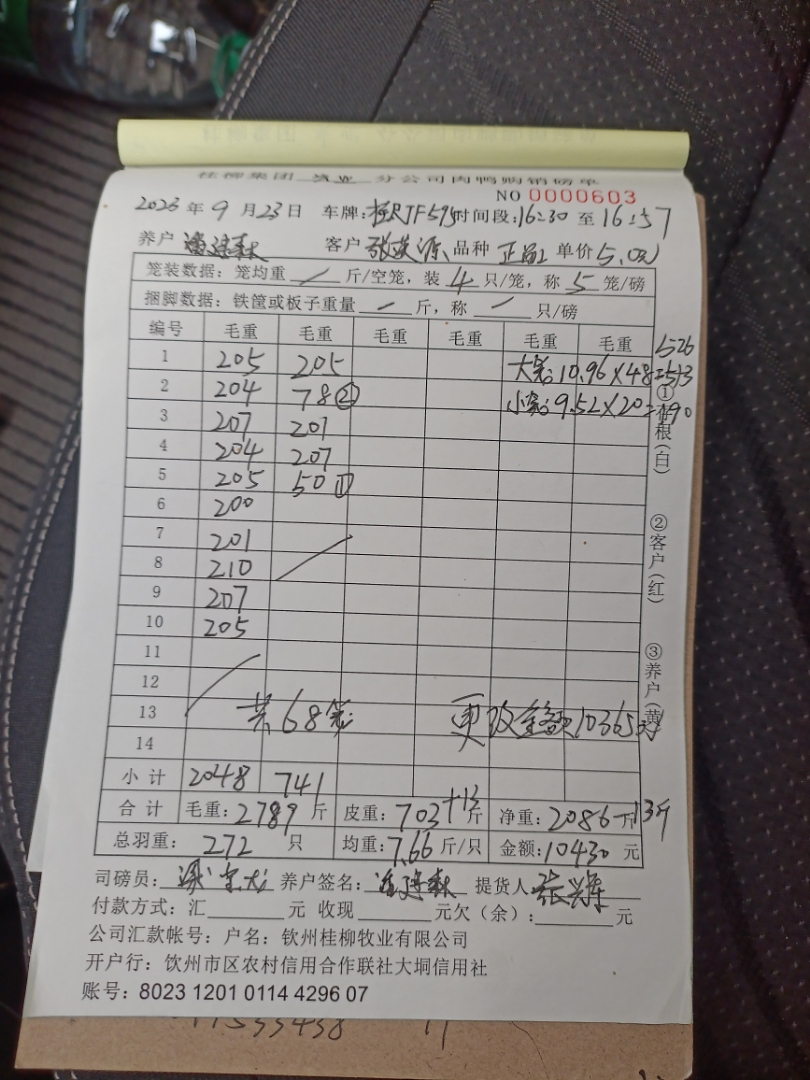 桂柳集团 牧业 分公司肉鸭购销磅单
NO 0000603
2023 年 9 月 23 日 车牌: JF595 时间段:16:30 至 16:57
养户 客户 品种 单价 5.00
笼装数据: 笼均重 / 斤/空笼, 装 4 只/笼, 称 5 笼/磅
捆脚数据: 铁筐或板子重量 一 斤, 称 / 只/磅
编号 毛重 毛重 毛重 毛重 毛重 毛重
1 205 205 大笼: 10.96×48=526
2 204 78② 小笼: 9.52×20=190
3 207 201
4 204 207
5 205 50①
6 200
7 201
8 210
9 207
10 205
11
12
13 共68笼 更改金额10365元
14
小计 2048 741
合计 毛重: 2789 斤 皮重: 703+13 斤 净重: 2086 斤-13斤
总羽重: 272 只 均重: 7.66 斤/只 金额: 10430 元
司磅员: 养户签名: 提货人
付款方式: 汇 元 收现 元欠（余）: 元
公司汇款帐号: 户名: 钦州桂柳牧业有限公司
开户行: 钦州市区农村信用合作联社大垌信用社
账号: 8023 1201 0114 4296 07
①存根（白）
②客户（红）
③养户（黄）